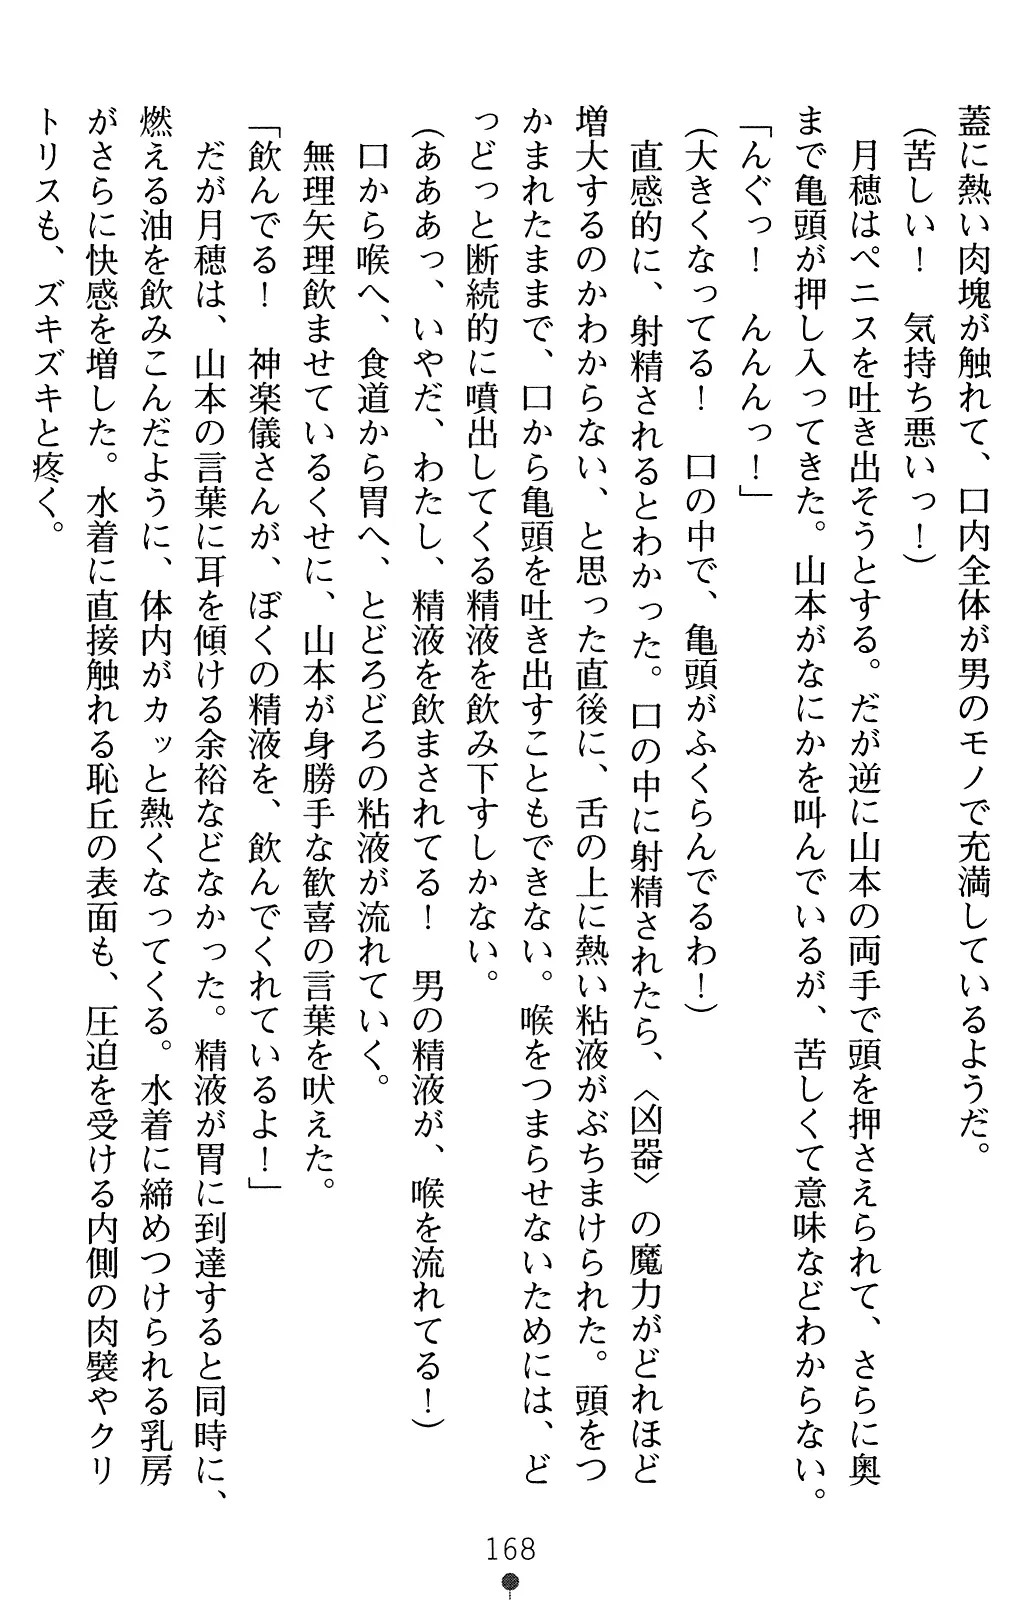 蓋に熱い肉塊が触れて、口内全体が男のモノで充満しているようだ。
(苦しい！　気持ち悪いっ！)
　月穂はペニスを吐き出そうとする。だが逆に山本の両手で頭を押さえられて、さらに奥
まで亀頭が押し入ってきた。山本がなにかを叫んでいるが、苦しくて意味などわからない。
「んぐっ！　んんんっ！」
(大きくなってる！　口の中で、亀頭がふくらんでるわ！)
　直感的に、射精されるとわかった。口の中に射精されたら、〈凶器〉の魔力がどれほど
増大するのかわからない、と思った直後に、舌の上に熱い粘液がぶちまけられた。頭をつ
かまれたままで、口から亀頭を吐き出すこともできない。喉をつまらせないためには、ど
っどっと断続的に噴出してくる精液を飲み下すしかない。
(あああっ、いやだ、わたし、精液を飲まされてる！　男の精液が、喉を流れてる！)
　口から喉へ、食道から胃へ、とどろどろの粘液が流れていく。
　無理矢理飲ませているくせに、山本が身勝手な歓喜の言葉を吠えた。
「飲んでる！　神楽儀さんが、ぼくの精液を、飲んでくれているよ！」
　だが月穂は、山本の言葉に耳を傾ける余裕などなかった。精液が胃に到達すると同時に、
燃える油を飲みこんだように、体内がカッと熱くなってくる。水着に締めつけられる乳房
がさらに快感を増した。水着に直接触れる恥丘の表面も、圧迫を受ける内側の肉襞やクリ
トリスも、ズキズキと疼く。
168